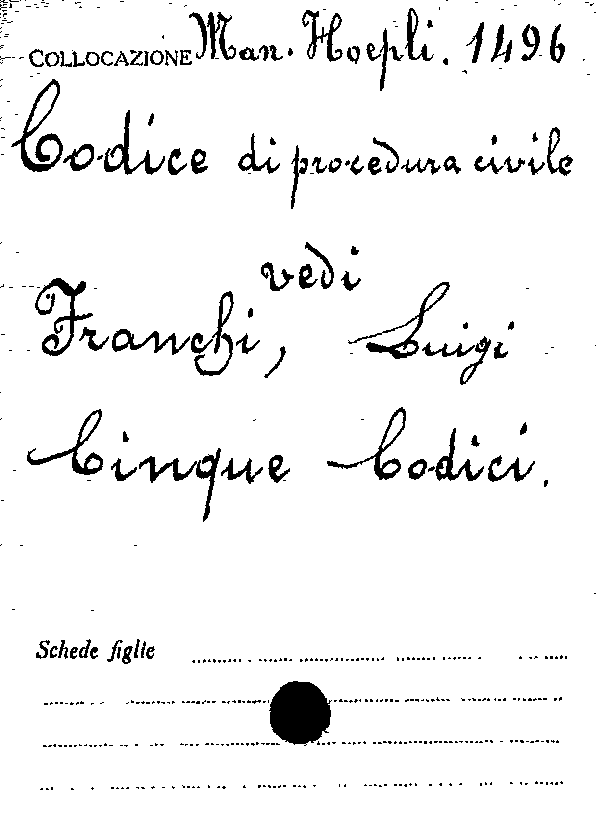 COLLOCAZIONE Man. Hoepli. 1496
Codice di procedura civile
vedi
Franchi, Luigi
Cinque Codici.
Schede figlie